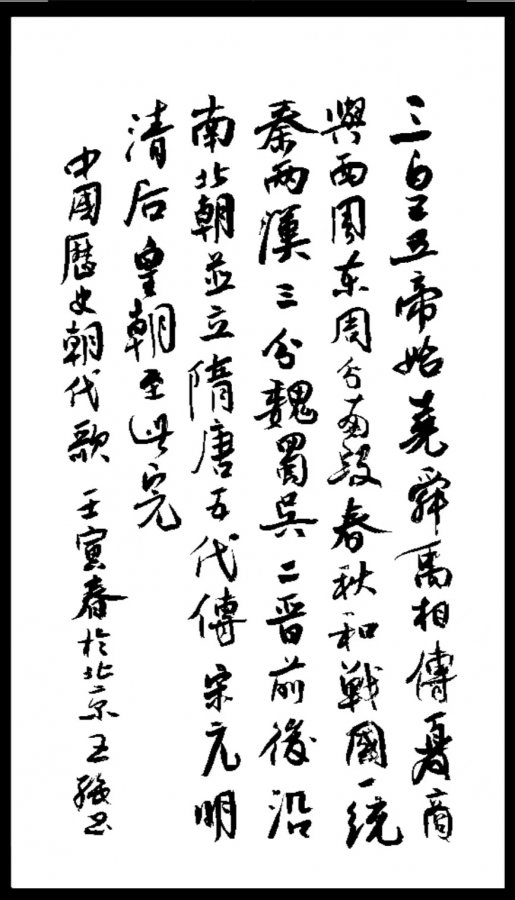 三皇五帝始堯舜禹相傳夏商
與西周東周分兩段春秋和戰國一統
秦兩漢三分魏蜀吳二晉前後沿
南北朝並立隋唐五代傳宋元明
清后皇朝至此完
中國歷史朝代歌 壬寅春於北京王強书